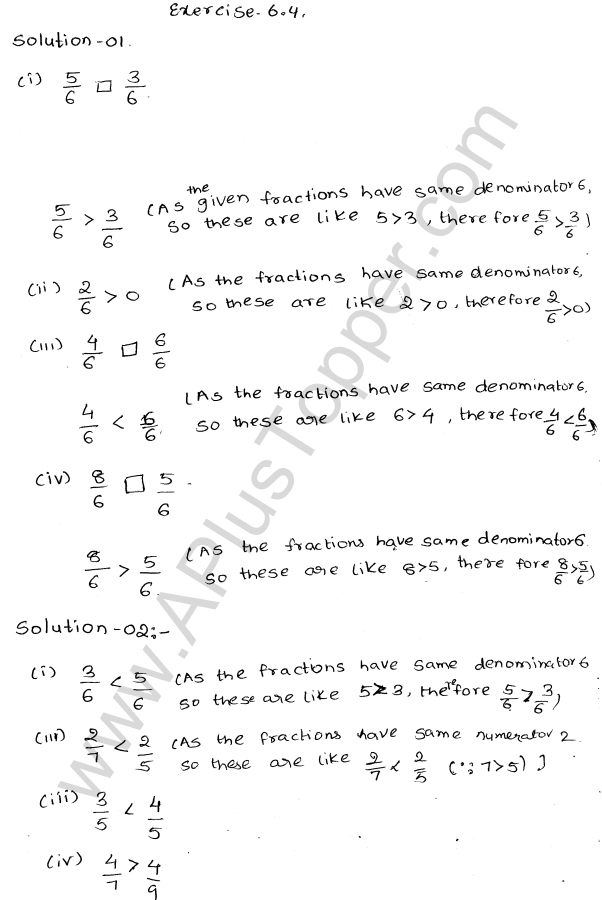 Exercise-6.4.
Solution-01.
(i) 5/6 □ 3/6.
5/6 > 3/6 (As the given fractions have same denominator 6,
so these are like 5>3, there fore 5/6 > 3/6)
(ii) 2/6 > 0 (As the fractions have same denominator 6,
so these are like 2>0, therefore 2/6 >0)
(iii) 4/6 □ 6/6
(As the fractions have same denominator 6,
4/6 < 6/6. so these are like 6>4, there fore 4/6 < 6/6)
(iv) 8/6 □ 5/6.
8/6 > 5/6. (As the fractions have same denominator 6
so these are like 8>5, there fore 8/6 > 5/6)
Solution-02:-
(i) 3/6 < 5/6 (As the fractions have same denominator 6
so these are like 5>3, therefore 5/6 > 3/6)
(iii) 2/7 < 2/5 (As the fractions have same numerator 2.
so these are like 2/7 < 2/5 (∵ 7>5) ]
(iii) 3/5 < 4/5
(iv) 4/7 > 4/9
www.APlusTopper.com